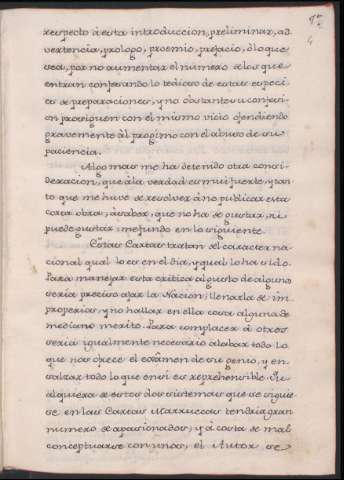 respecto à esta introduccion, preliminar, ad
vertencia, prologo, proemio, prefacio, ò lo que
sea, por no aumentar el numero de los que
entran confesando lo tedioso de estas especi
es de preparaciones, y no obstante su confesi
on prosiguen con el mismo vicio ofendiendo
gravemente al progimo con el abuso de su
paciencia.
Algo mas me ha detenido otra consi
deracion, que à la verdad es mui fuerte, y tan
to que me huve de resolver à no publicar esta
corta obra, à saber, que no ha de gustar, ni
puede gustar: me fundo en lo siguiente.
Estas Cartas tratan del caracter na
cional qual lo es en el dia, y qual lo ha sido.
Para manejar esta critica al gusto de algunos
seria preciso ajar la Nacion, llenarla de im
properios, y no hallar en ella cosa alguna de
mediano merito. Para complacer à otros
seria igualmente necesario alabar todo lo
que nos ofrece el exâmen de su genio, y en
salzar todo lo que en si es reprehensible. Qu
alquiera de estos dos sistemas que se siguie
se en las Cartas Marruecas tendria gran
numero de apasionados; y à costa de mal
conceptuarse con unos, el Autor se